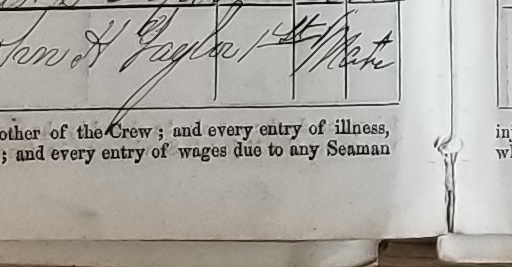 hn H Taylor 1st Mate
other of the Crew ; and every entry of illness,
; and every entry of wages due to any Seaman
in
w